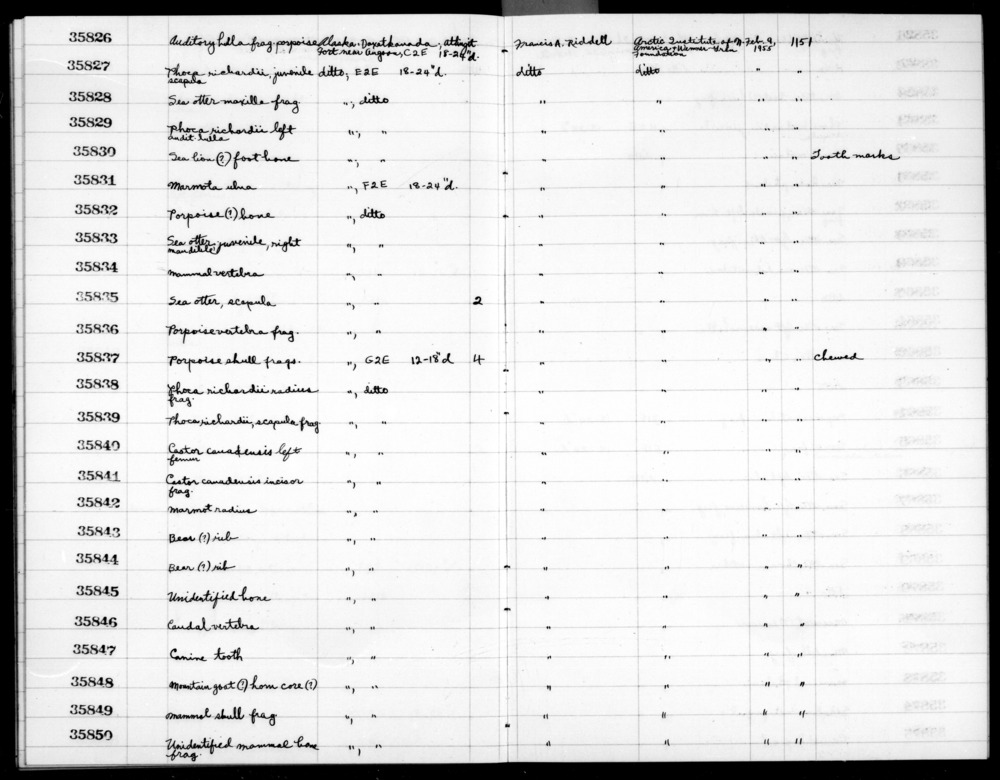 35826 Auditory bulla frag. porpoise Alaska, Daxatkanada, Francis A. Riddell Arctic Institute of N. Feb. 9, 1151
Fort near Angoon, C2E 18-24"d. America + Wenner-Gren 1955
Foundation
35827 Phoca richardii, juvenile ditto; E2E 18-24"d. ditto ditto
scapula
35828 Sea otter maxilla frag. "; ditto " " " "
35829 Phoca richardii left "; " " " " "
audit. bulla
35830 Sea lion (?) foot bone "; " " " " " Tooth marks
35831 Marmota ulna ", F2E 18-24"d. " " " "
35832 Porpoise (?) bone ", ditto " " " "
35833 Sea otter, juvenile, right ", " " " " "
mandible
35834 Mammal vertebra ", " " " " "
35835 Sea otter, scapula ", " 2 " " " "
35836 Porpoise vertebra frag. ", " " " " "
35837 Porpoise skull frags. ", G2E 12-18"d 4 " " " " chewed
35838 Phoca richardii radius ", ditto " " " "
frag.
35839 Phoca richardii, scapula frag. ", " " " " "
35840 Castor canadensis left ", " " " " "
femur
35841 Castor canadensis incisor ", " " " " "
frag.
35842 Marmot radius ", " " " " "
35843 Bear (?) rib ", " " " " "
35844 Bear (?) rib ", " " " " "
35845 Unidentified bone ", " " " " "
35846 Caudal vertebra ", " " " " "
35847 Canine tooth ", " " " " "
35848 Mountain goat (?) horn core (?) ", " " " " "
35849 Mammal skull frag. ", " " " " "
35850 Unidentified mammal bone ", " " " " "
frag.